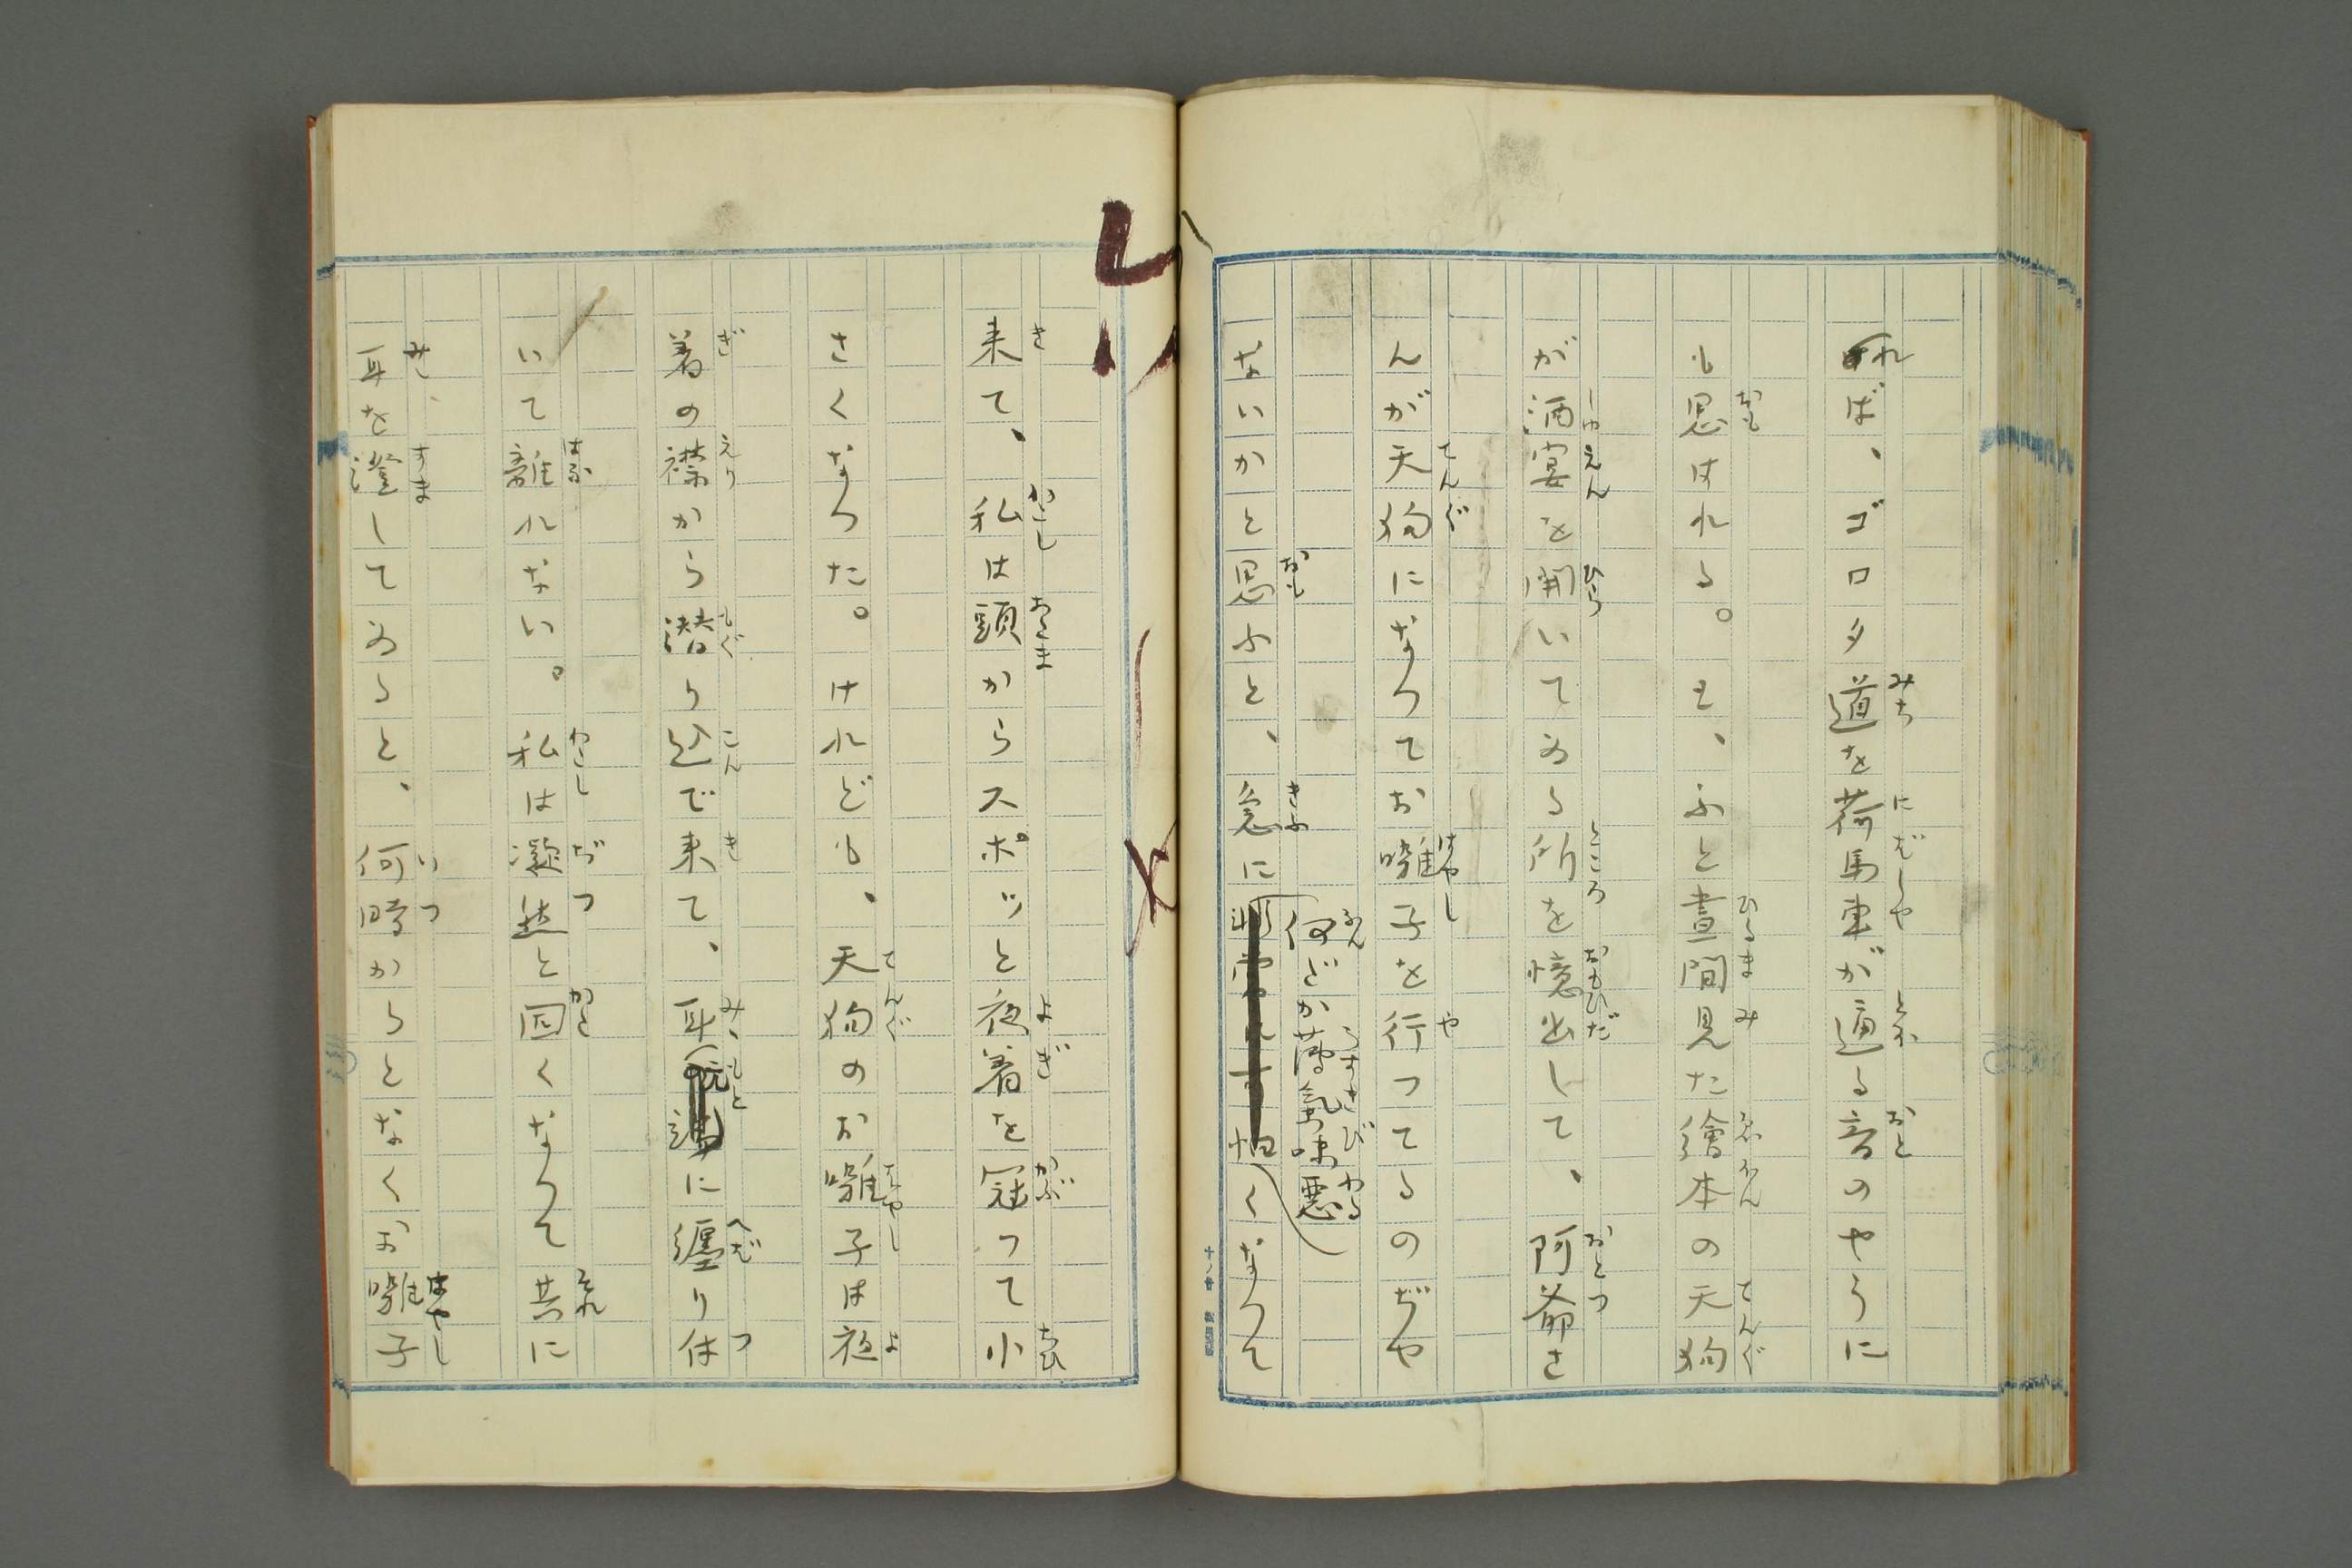 れば、ゴロタ道を荷馬車が通る音のやうに
も思はれる。と、ふと昼間見た繪本の天狗
が酒宴を開いてゐる所を憶出して、阿爺さ
んが天狗になつてお囃子を行つてるのぢや
ないかと思ふと、急に何だか薄氣味悪くなつて
来て、私は頭からスポッと夜着を冠つて小
さくなつた。けれども、天狗のお囃子は夜
着の襟から潜り込で来て、耳元に纏り付
いて離れない。私は凝然と固くなつて其に
耳を澄してゐると、何時からとなくお囃子